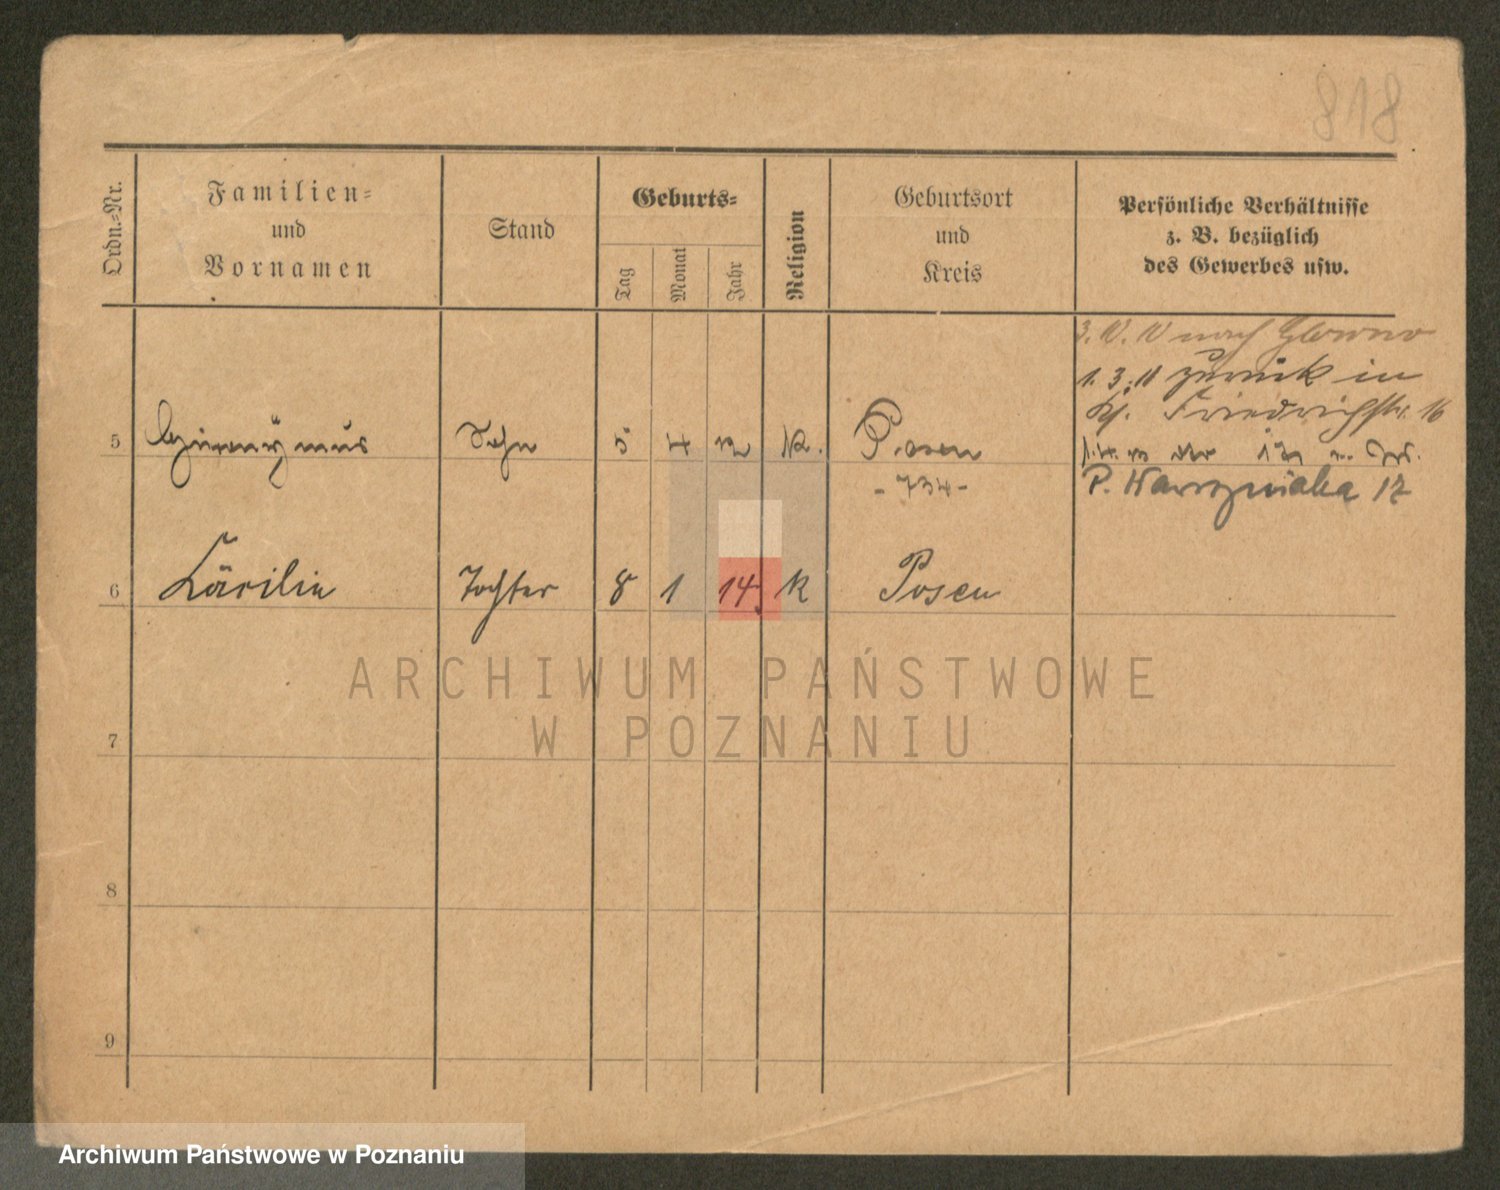 818
Ordn.=Nr.
Familien=
und
Vornamen
Stand
Geburts=
Tag
Monat
Jahr
Religion
Geburtsort
und
Kreis
Persönliche Verhältnisse
z. B. bezüglich
des Gewerbes usw.
nach Glowno
1. 3. 11 zurück in
Friedrichstr. 16
5 Sohn 5 4 K. Posen
- 734 -
P. 17
6 Cäcilie Tochter 8 1 14 K Posen
7
8
9
ARCHIWUM PAŃSTWOWE
W POZNANIU
Archiwum Państwowe w Poznaniu